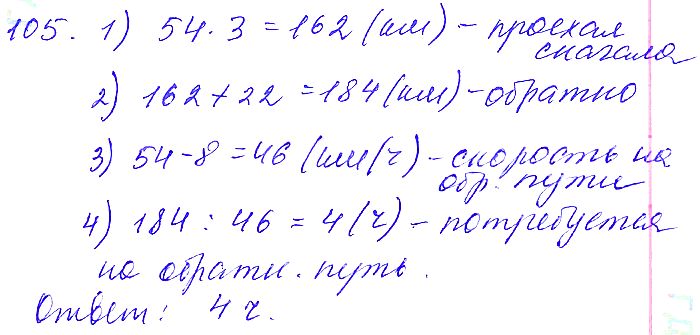 105. 1) 54 · 3 = 162 (км) – проехал
сначала
2) 162 + 22 = 184 (км) – обратно
3) 54 – 8 = 46 (км/ч) – скорость на
обр. пути
4) 184 : 46 = 4 (ч) – потребуется
на обратн. путь.
Ответ: 4 ч.